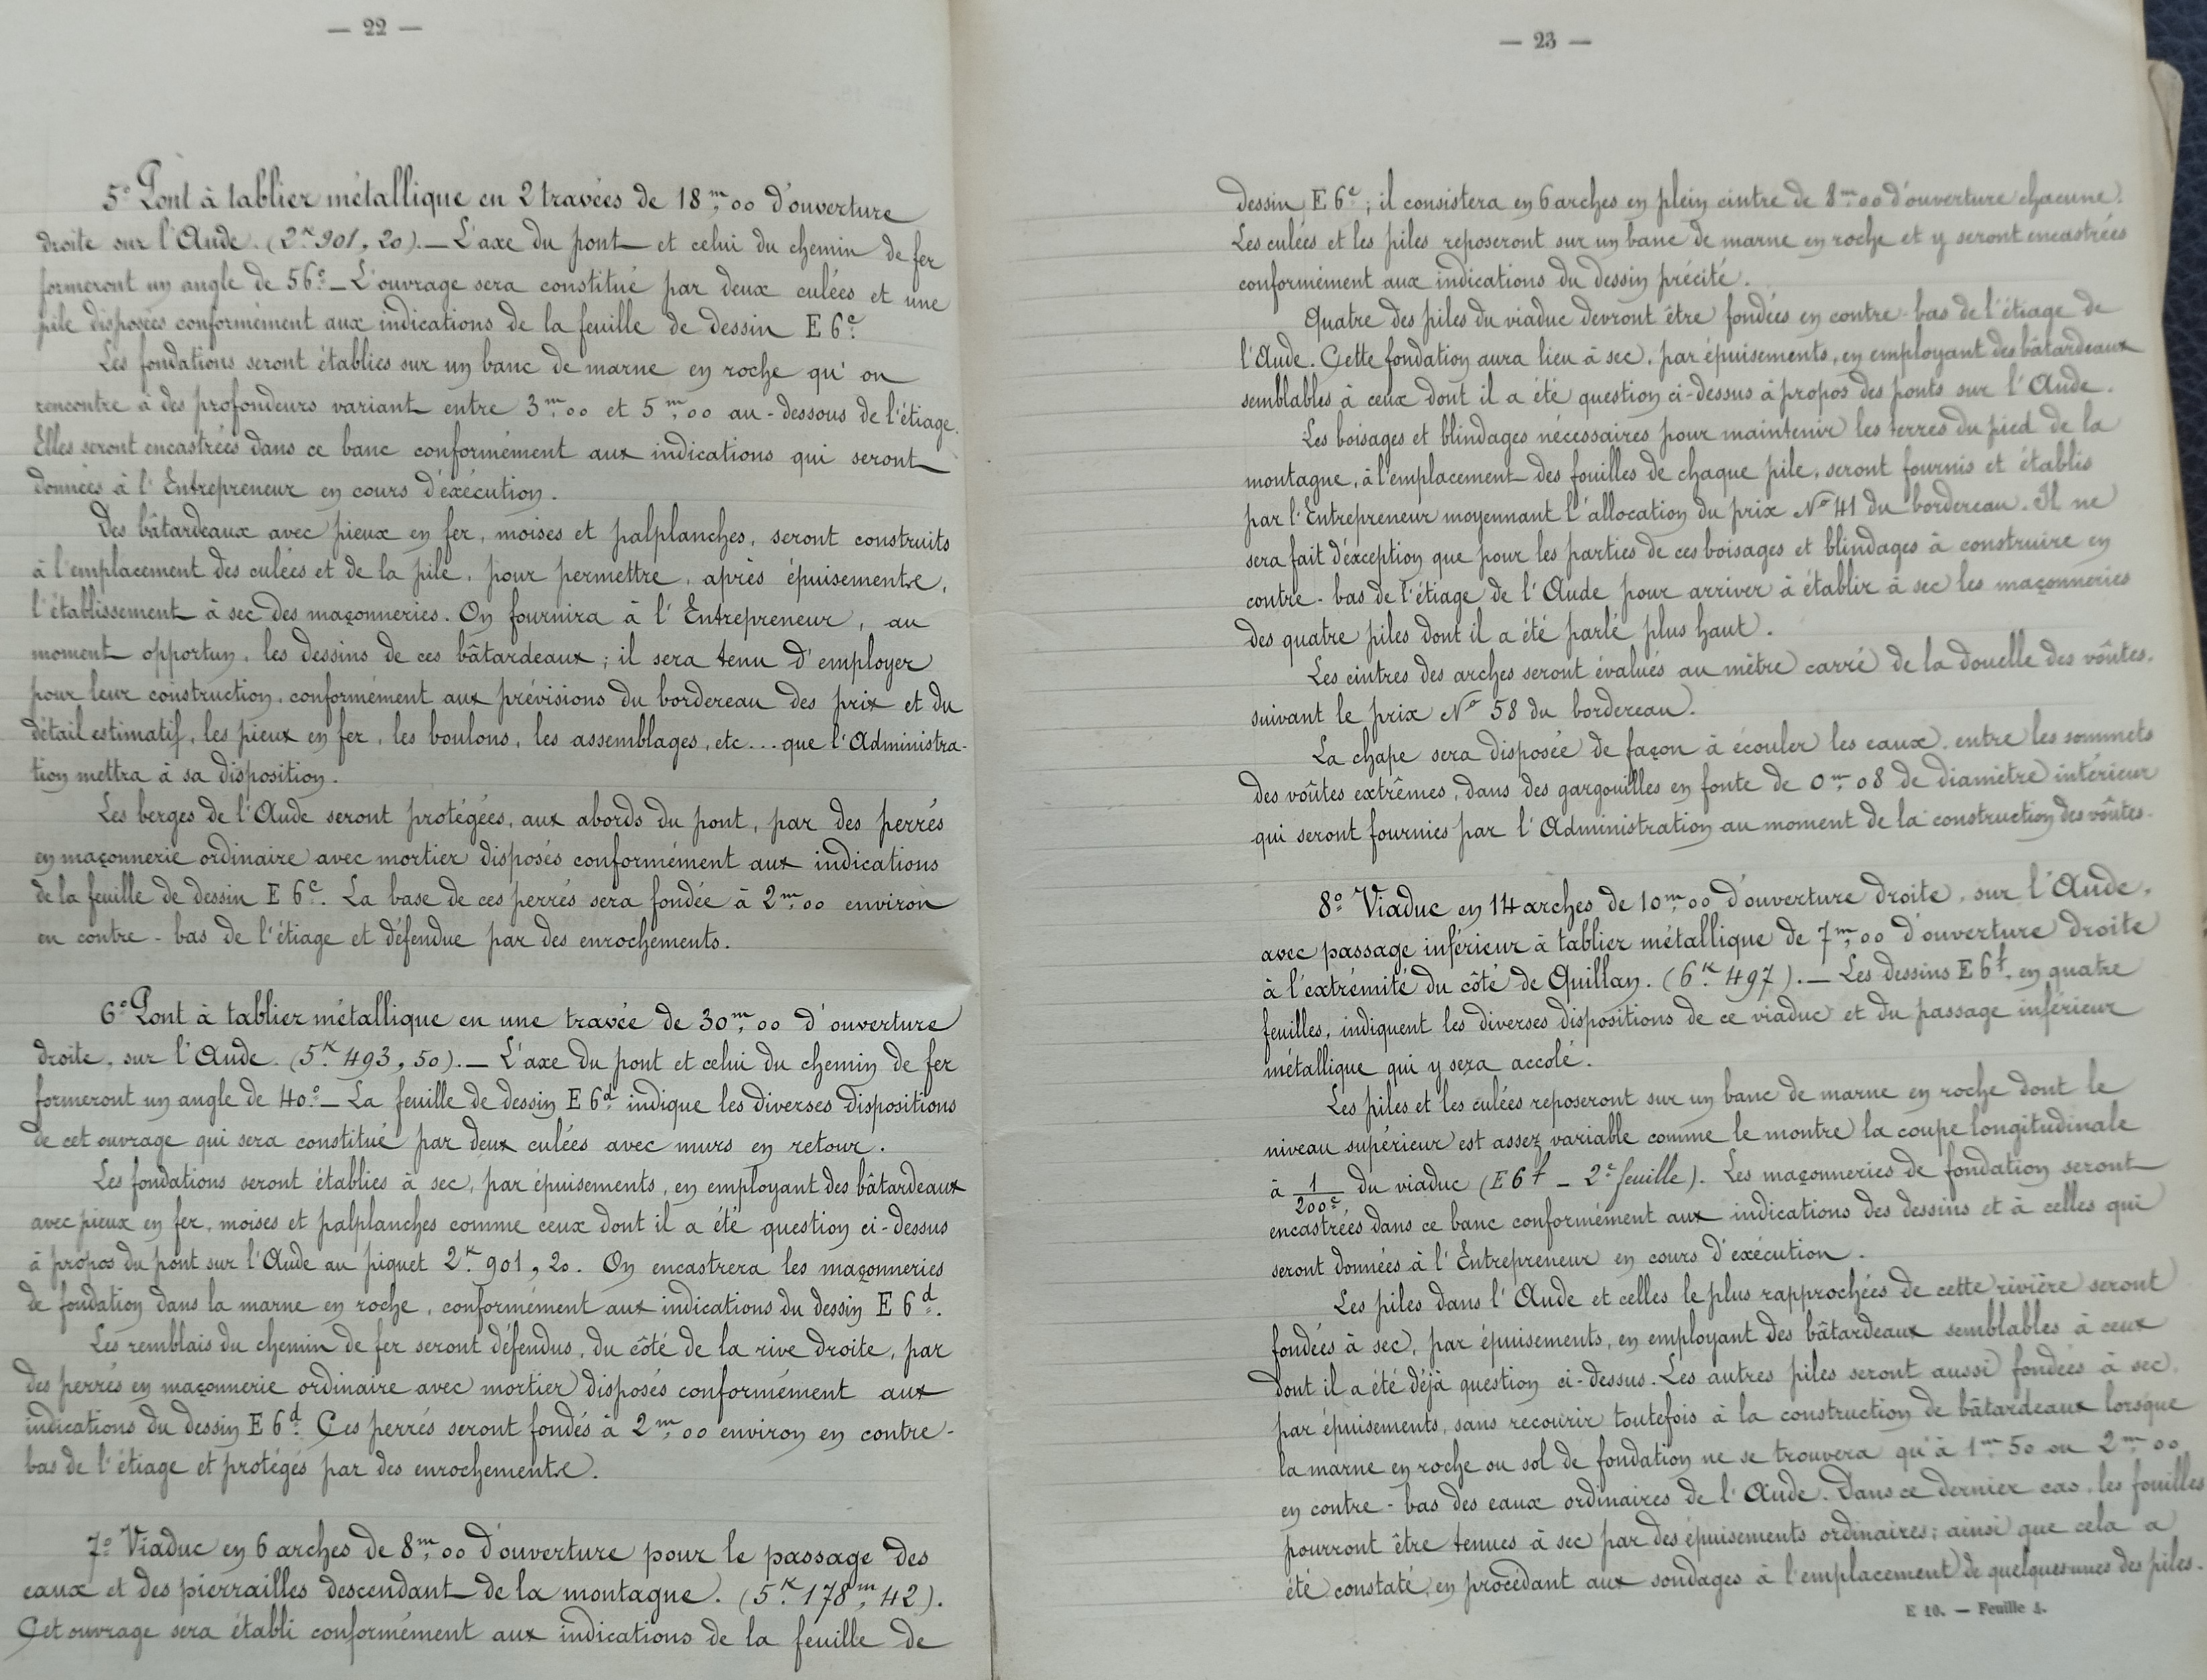 — 22 —
5° Pont à tablier métallique en 2 travées de 18m,00 d'ouverture
droite sur l'Aude. (2K.901,20). — L'axe du pont et celui du chemin de fer
formeront un angle de 56°. — L'ouvrage sera constitué par deux culées et une
pile disposées conformément aux indications de la feuille de dessin E 6c.
Les fondations seront établies sur un banc de marne en roche qu'on
rencontre à des profondeurs variant entre 3m,00 et 5m,00 au-dessous de l'étiage.
Elles seront encastrées dans ce banc conformément aux indications qui seront
données à l'Entrepreneur en cours d'éxécution.
Des bâtardeaux avec pieux en fer, moises et palplanches, seront construits
à l'emplacement des culées et de la pile, pour permettre, après épuisements,
l'établissement à sec des maçonneries. On fournira à l'Entrepreneur, au
moment opportun, les dessins de ces bâtardeaux ; il sera tenu d'employer
pour leur construction, conformément aux prévisions du bordereau des prix et du
détail estimatif, les pieux en fer, les boulons, les assemblages, etc... que l'Administra-
tion mettra à sa disposition.
Les berges de l'Aude seront protégées, aux abords du pont, par des perrés
en maçonnerie ordinaire avec mortier disposés conformément aux indications
de la feuille de dessin E 6c. La base de ces perrés sera fondée à 2m,00 environ
en contre-bas de l'étiage et défendue par des enrochements.
6° Pont à tablier métallique en une travée de 30m,00 d'ouverture
droite, sur l'Aude. (5K.493,50). — L'axe du pont et celui du chemin de fer
formeront un angle de 40°. — La feuille de dessin E 6d indique les diverses dispositions
de cet ouvrage qui sera constitué par deux culées avec murs en retour.
Les fondations seront établies à sec, par épuisements, en employant des bâtardeaux
avec pieux en fer, moises et palplanches comme ceux dont il a été question ci-dessus
à propos du pont sur l'Aude au piquet 2K.901,20. On encastrera les maçonneries
de fondation dans la marne en roche, conformément aux indications du dessin E 6d.
Les remblais du chemin de fer seront défendus, du côté de la rive droite, par
des perrés en maçonnerie ordinaire avec mortier disposés conformément aux
indications du dessin E 6d. Ces perrés seront fondés à 2m,00 environ en contre-
bas de l'étiage et protégés par des enrochements.
7° Viaduc en 6 arches de 8m,00 d'ouverture pour le passage des
eaux et des pierrailles descendant de la montagne. (5K.178m,42).
Cet ouvrage sera établi conformément aux indications de la feuille de
— 23 —
dessin E 6e ; il consistera en 6 arches en plein cintre de 8m,00 d'ouverture chacune.
Les culées et les piles reposeront sur un banc de marne en roche et y seront encastrées
conformément aux indications du dessin précité.
Quatre des piles du viaduc devront être fondées en contre-bas de l'étiage de
l'Aude. Cette fondation aura lieu à sec, par épuisements, en employant des bâtardeaux
semblables à ceux dont il a été question ci-dessus à propos des ponts sur l'Aude.
Les boisages et blindages nécessaires pour maintenir les terres du pied de la
montagne, à l'emplacement des fouilles de chaque pile, seront fournis et établis
par l'Entrepreneur moyennant l'allocation du prix No 41 du bordereau. Il ne
sera fait d'éxception que pour les parties de ces boisages et blindages à construire en
contre-bas de l'étiage de l'Aude pour arriver à établir à sec les maçonneries
des quatre piles dont il a été parlé plus haut.
Les cintres des arches seront évalués au mètre carré de la douelle des voûtes,
suivant le prix No 58 du bordereau.
La chape sera disposée de façon à écouler les eaux, entre les sommets
des voûtes extrêmes, dans des gargouilles en fonte de 0m,08 de diamètre intérieur
qui seront fournies par l'Administration au moment de la construction des voûtes.
8° Viaduc en 14 arches de 10m,00 d'ouverture droite, sur l'Aude,
avec passage inférieur à tablier métallique de 7m,00 d'ouverture droite
à l'éxtrémité du côté de Quillan. (6K.497). — Les dessins E 6f, en quatre
feuilles, indiquent les diverses dispositions de ce viaduc et du passage inférieur
métallique qui y sera accolé.
Les piles et les culées reposeront sur un banc de marne en roche dont le
niveau supérieur est assez variable comme le montre la coupe longitudinale
à 1/200e du viaduc (E 6f — 2e feuille). Les maçonneries de fondation seront
encastrées dans ce banc conformément aux indications des dessins et à celles qui
seront données à l'Entrepreneur en cours d'exécution.
Les piles dans l'Aude et celles le plus rapprochées de cette rivière seront
fondées à sec, par épuisements, en employant des bâtardeaux semblables à ceux
dont il a été déjà question ci-dessus. Les autres piles seront aussi fondées à sec,
par épuisements, sans recourir toutefois à la construction de bâtardeaux lorsque
la marne en roche ou sol de fondation ne se trouvera qu'à 1m,50 ou 2m,00
en contre-bas des eaux ordinaires de l'Aude. Dans ce dernier cas, les fouilles
pourront être tenues à sec par des épuisements ordinaires ; ainsi que cela a
été constaté, en procédant aux sondages à l'emplacement de quelques unes des piles.
E 10. — Feuille 4.